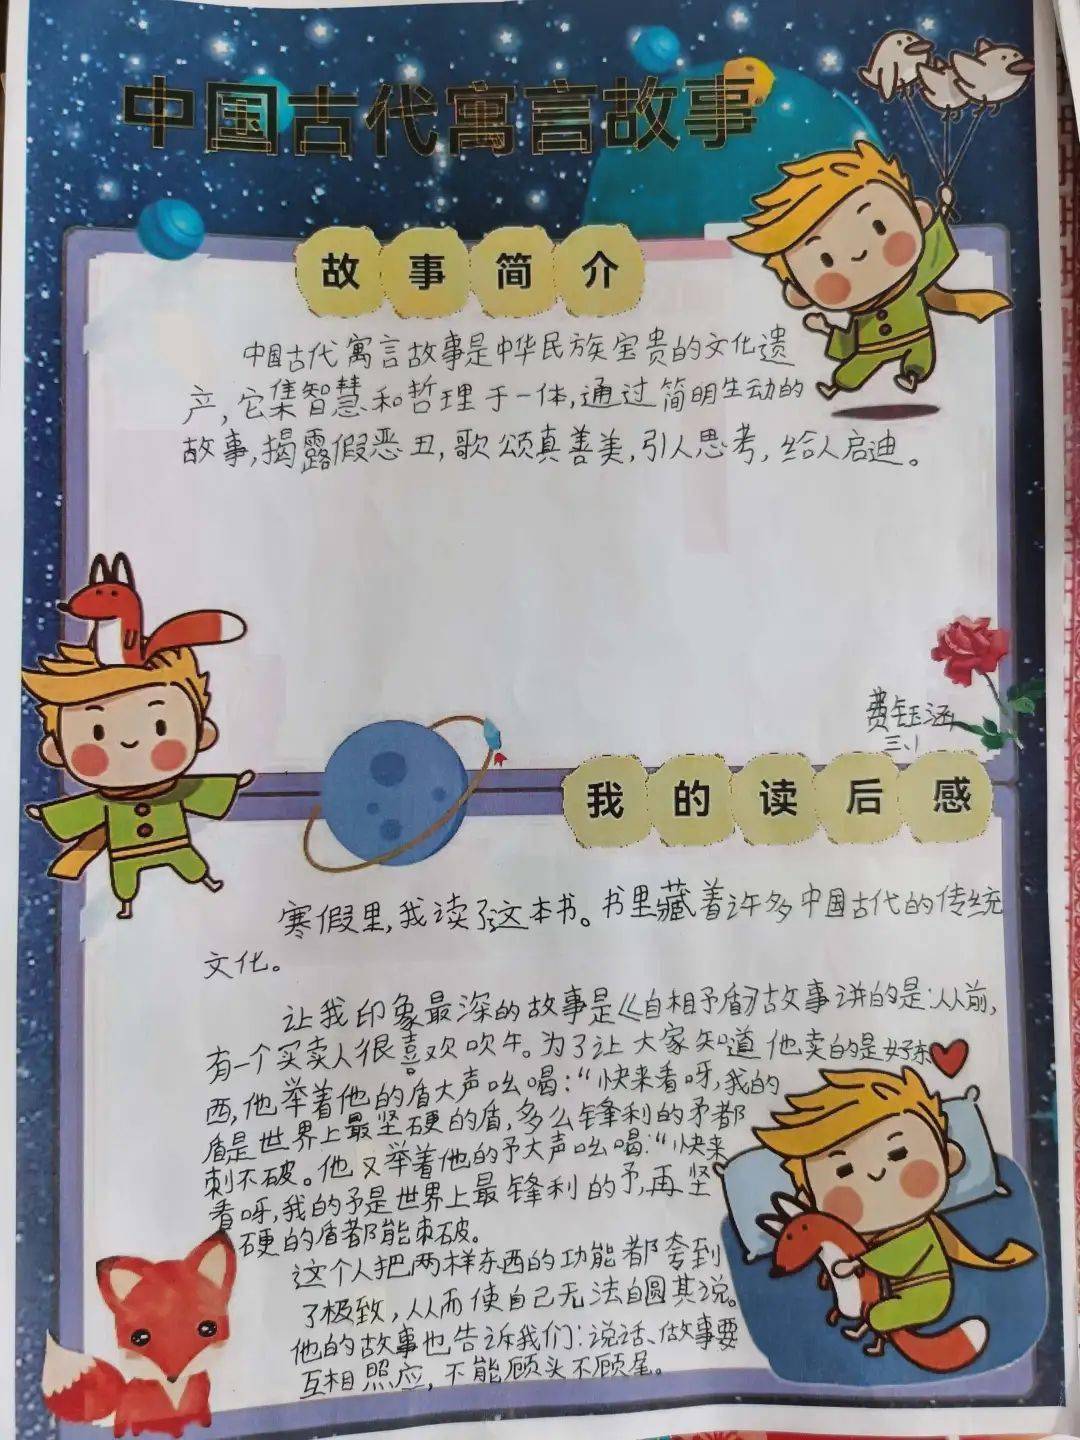 中国古代寓言故事
故事简介
中国古代寓言故事是中华民族宝贵的文化遗
产,它集智慧和哲理于一体,通过简明生动的
故事,揭露假恶丑,歌颂真善美,引人思考,给人启迪。
费钰涵
三、1
我的读后感
寒假里,我读了这本书。书里藏着许多中国古代的传统
文化。
让我印象最深的故事是《自相矛盾》故事讲的是:从前,
有一个买卖人很喜欢吹牛。为了让大家知道他卖的是好东
西,他举着他的盾大声吆喝:“快来看呀,我的
盾是世界上最坚硬的盾,多么锋利的矛都
刺不破。他又举着他的予大声吆喝:“快来
看呀,我的予是世界上最锋利的予,再坚
硬的盾都能刺破。
这个人把两样东西的功能都夸到
了极致,从而使自己无法自圆其说。
他的故事也告诉我们:说话、做事要
互相照应,不能顾头不顾尾。